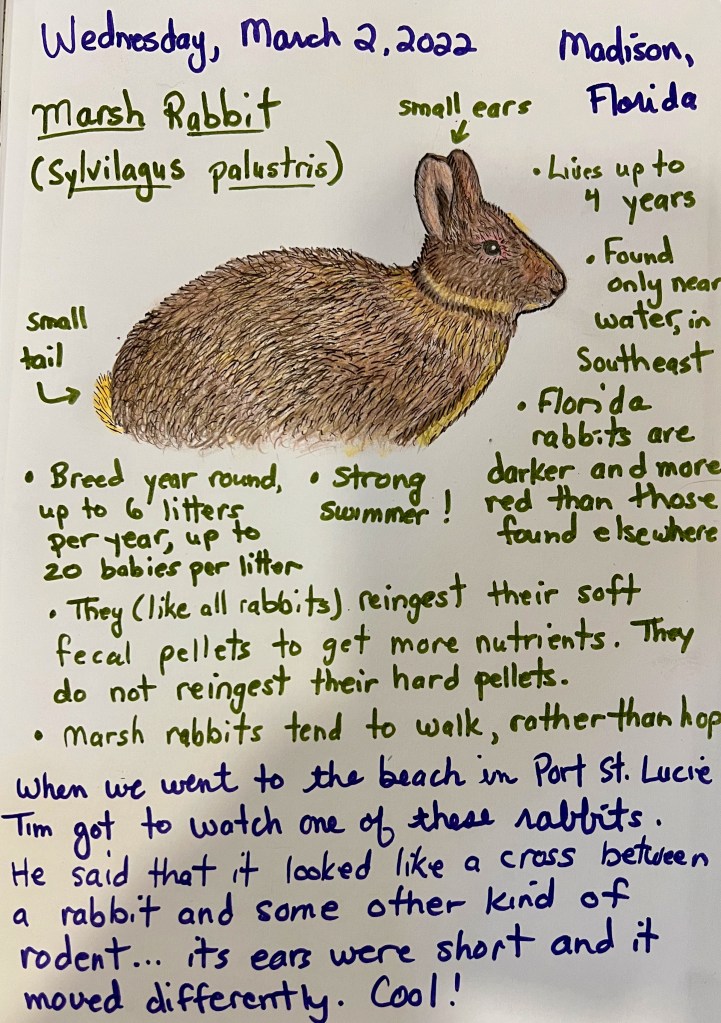 Wednesday, March 2, 2022
Madison,
Florida
Marsh Rabbit
(Sylvilagus palustris)
small ears
• Lives up to
4 years
• Found
only near
water, in
Southeast
small
tail
• Florida
rabbits are
darker and more
red than those
found elsewhere
• Breed year round,
up to 6 litters
per year, up to
20 babies per litter
• Strong
swimmer!
• They (like all rabbits) reingest their soft
fecal pellets to get more nutrients. They
do not reingest their hard pellets.
• Marsh rabbits tend to walk, rather than hop
When we went to the beach in Port St. Lucie
Tim got to watch one of these rabbits.
He said that it looked like a cross between
a rabbit and some other kind of
rodent... its ears were short and it
moved differently. Cool!